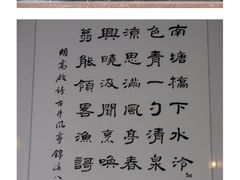 南塘橋下水泠
色青一勺清泉
涼思滿亭春
興曉汲聞烹喚
翁能領客漁謌
明高啟詩古井風亭錦溪八